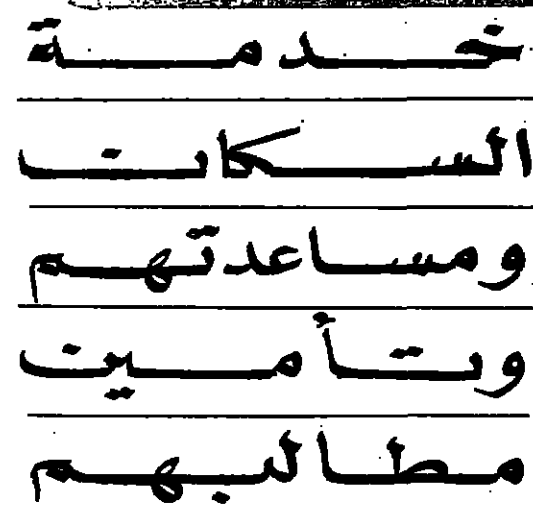 خدمة
السكان
ومساعدتهم
وتأمين
مطالبهم